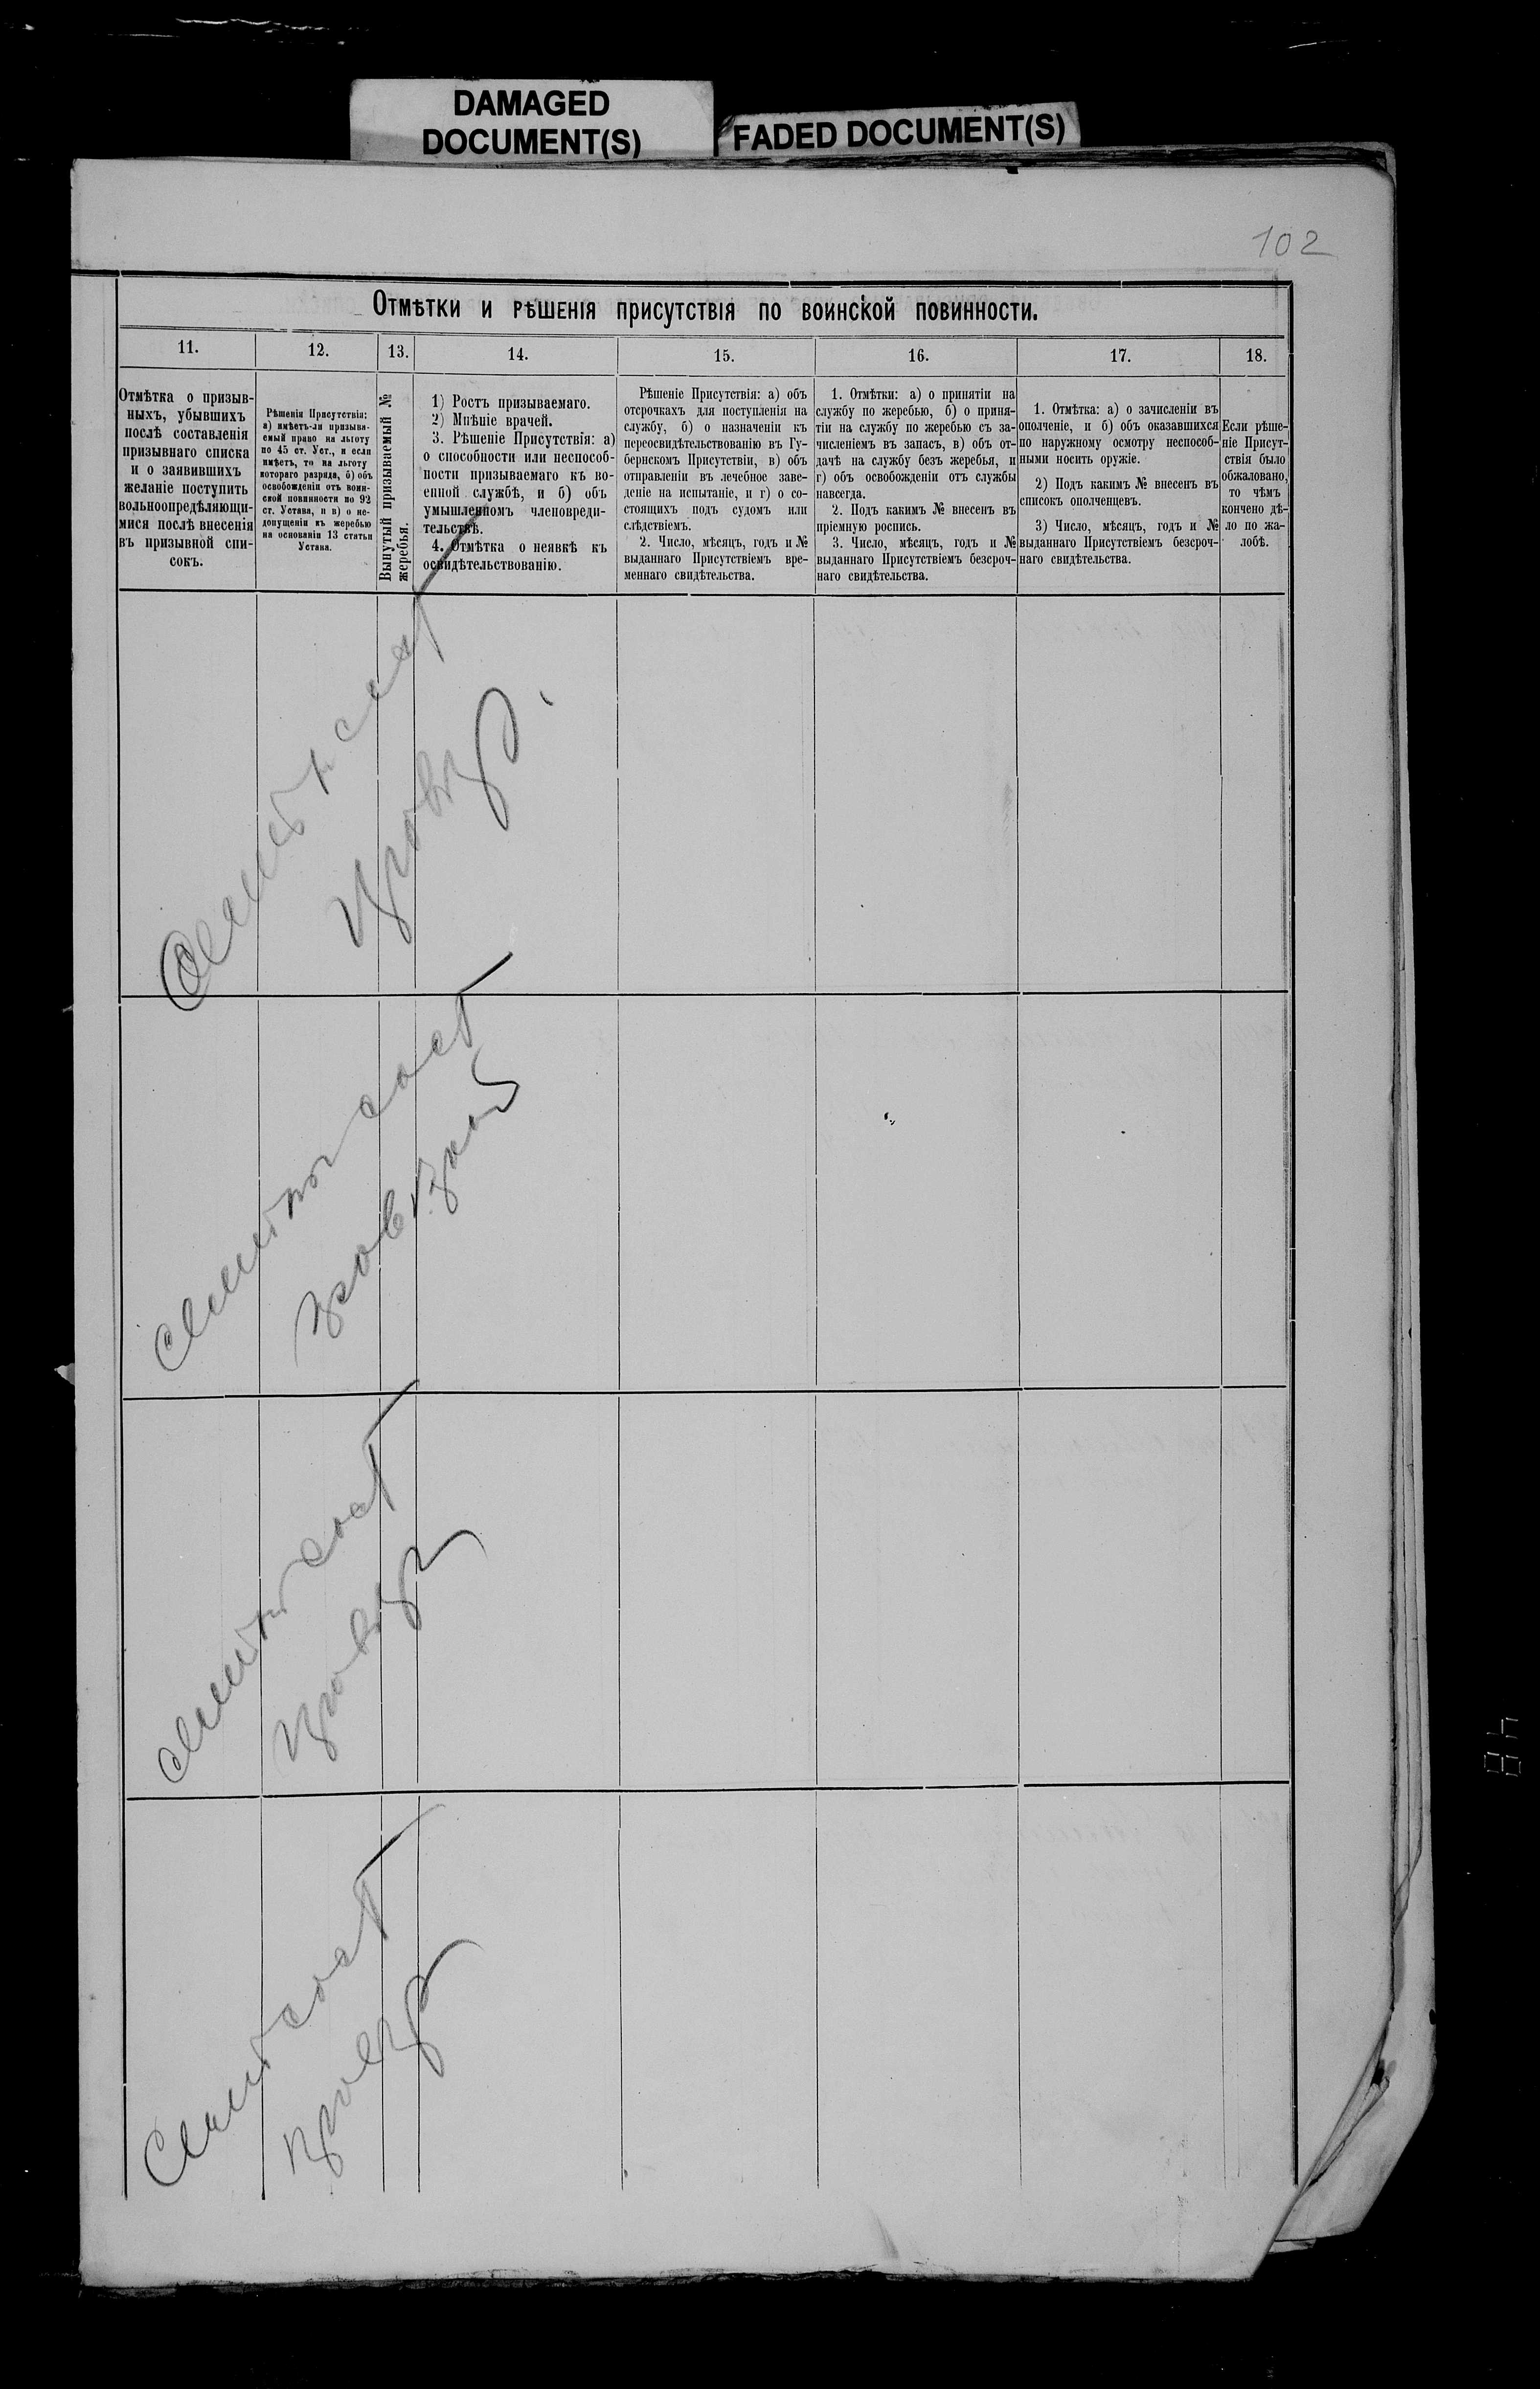 DAMAGED
DOCUMENT(S)
FADED DOCUMENT(S)
102
Отмѣтки и рѣшенія присутствія по воинской повинности.
11.
12.
13.
14.
15.
16.
17.
18.
Отмѣтка о призыв-
ныхъ, убывшихъ
послѣ составленія
призывнаго списка
и о заявившихъ
желаніе поступить
вольноопредѣляющи-
мися послѣ внесенія
въ призывной спи-
сокъ.
Рѣшенія Присутствія:
а) имѣетъ-ли призыва-
емый право на льготу
по 45 ст. Уст., и если
имѣетъ, то на льготу
котораго разряда, б) объ
освобожденіи отъ воин-
ской повинности по 92
ст. Устава, и в) о не-
допущеніи къ жеребью
на основаніи 13 статьи
Устава.
Вынутый призываемый №
жеребья.
1) Ростъ призываемаго.
2) Мнѣніе врачей.
3. Рѣшеніе Присутствія: а)
о способности или неспособ-
ности призываемаго къ во-
енной службѣ, и б) объ
умышленномъ членовреди-
тельствѣ.
4. Отмѣтка о неявкѣ къ
освидѣтельствованію.
Рѣшеніе Присутствія: а) объ
отсрочкахъ для поступленія на
службу, б) о назначеніи къ
переосвидѣтельствованію въ Гу-
бернскомъ Присутствіи, в) объ
отправленіи въ лечебное заве-
деніе на испытаніе, и г) о со-
стоящихъ подъ судомъ или
слѣдствіемъ.
2. Число, мѣсяцъ, годъ и №
выданнаго Присутствіемъ вре-
меннаго свидѣтельства.
1. Отмѣтки: а) о принятіи на
службу по жеребью, б) о приня-
тіи на службу по жеребью съ за-
численіемъ въ запасъ, в) объ от-
дачѣ на службу безъ жеребья, и
г) объ освобожденіи отъ службы
навсегда.
2. Подъ какимъ № внесенъ въ
пріемную роспись.
3. Число, мѣсяцъ, годъ и №
выданнаго Присутствіемъ безсроч-
наго свидѣтельства.
1. Отмѣтка: а) о зачисленіи въ
ополченіе, и б) объ оказавшихся
по наружному осмотру неспособ-
ными носить оружіе.
2) Подъ какимъ № внесенъ въ
списокъ ополченцевъ.
3) Число, мѣсяцъ, годъ и №
выданнаго Присутствіемъ безсроч-
наго свидѣтельства.
Если рѣше-
ніе Присут-
ствія было
обжаловано,
то чѣмъ
кончено дѣ-
ло по жа-
лобѣ.
48